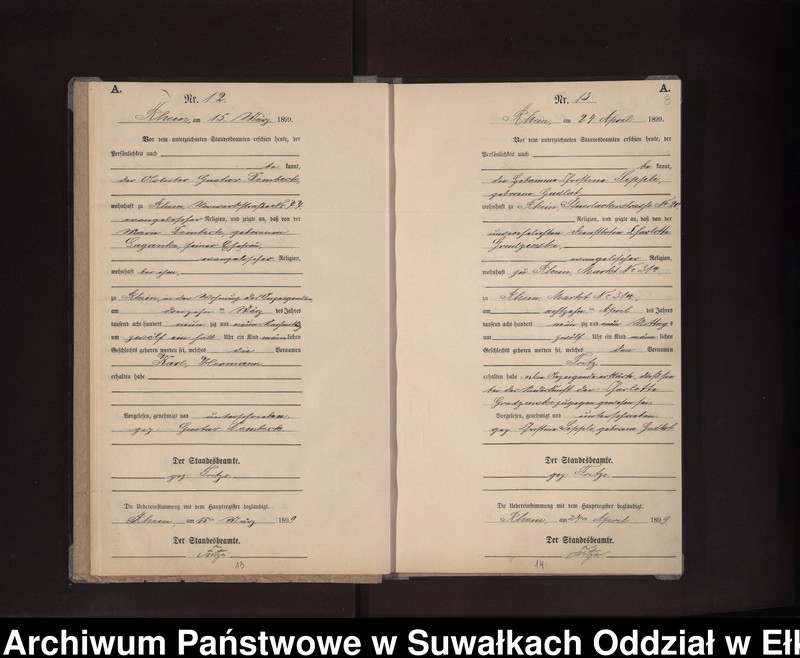 A.
Nr. 12.
Rhein, am 15. März 1899.
Vor dem unterzeichneten Standesbeamten erschien heute, der
Persönlichkeit nach
be kannt,
der Gustav Lembeck,
wohnhaft zu Rhein,
evangelischer Religion, und zeigte an, daß von der
Maria Lembeck, geborenen
seiner Ehefrau,
evangelischer Religion,
wohnhaft bei ihm,
zu Rhein, in der Wohnung des Anzeigenden,
am März des Jahres
tausend acht hundert neun zig und neun Nachmittags
um zwölf ein halb Uhr ein Kind männlichen
Geschlechts geboren worden sei, welches die Vornamen
Karl Hermann
erhalten habe
Vorgelesen, genehmigt und unterschrieben
gez. Gustav Lembeck
Der Standesbeamte.
gez. Fritze
Die Uebereinstimmung mit dem Hauptregister beglaubigt.
Rhein, am 15ten März 1899
Der Standesbeamte.
Fritze
13
A.
8
Nr. 13.
Rhein, am 24 April 1899.
Vor dem unterzeichneten Standesbeamten erschien heute, der
Persönlichkeit nach
be kannt,
die Hebamme Christine
geborene
wohnhaft zu Rhein,
Religion, und zeigte an, daß von der
unverehelichten Charlotte
evangelischer Religion,
wohnhaft zu Rhein, Markt No 31a
zu Rhein, Markt No 31a
am April des Jahres
tausend acht hundert neun zig und neun Mittags
um zwölf Uhr ein Kind männlichen
Geschlechts geboren worden sei, welches den Vornamen
Fritz
erhalten habe. Anzeigende erklärte, daß sie
bei der Niederkunft der Charlotte
zugegen gewesen sei.
Vorgelesen, genehmigt und unterschrieben
gez. Christine geborene
Der Standesbeamte.
gez. Fritze
Die Uebereinstimmung mit dem Hauptregister beglaubigt.
Rhein, am 24ten April 1899
Der Standesbeamte.
Fritze
14
Archiwum Państwowe w Suwałkach Oddział w Ełk